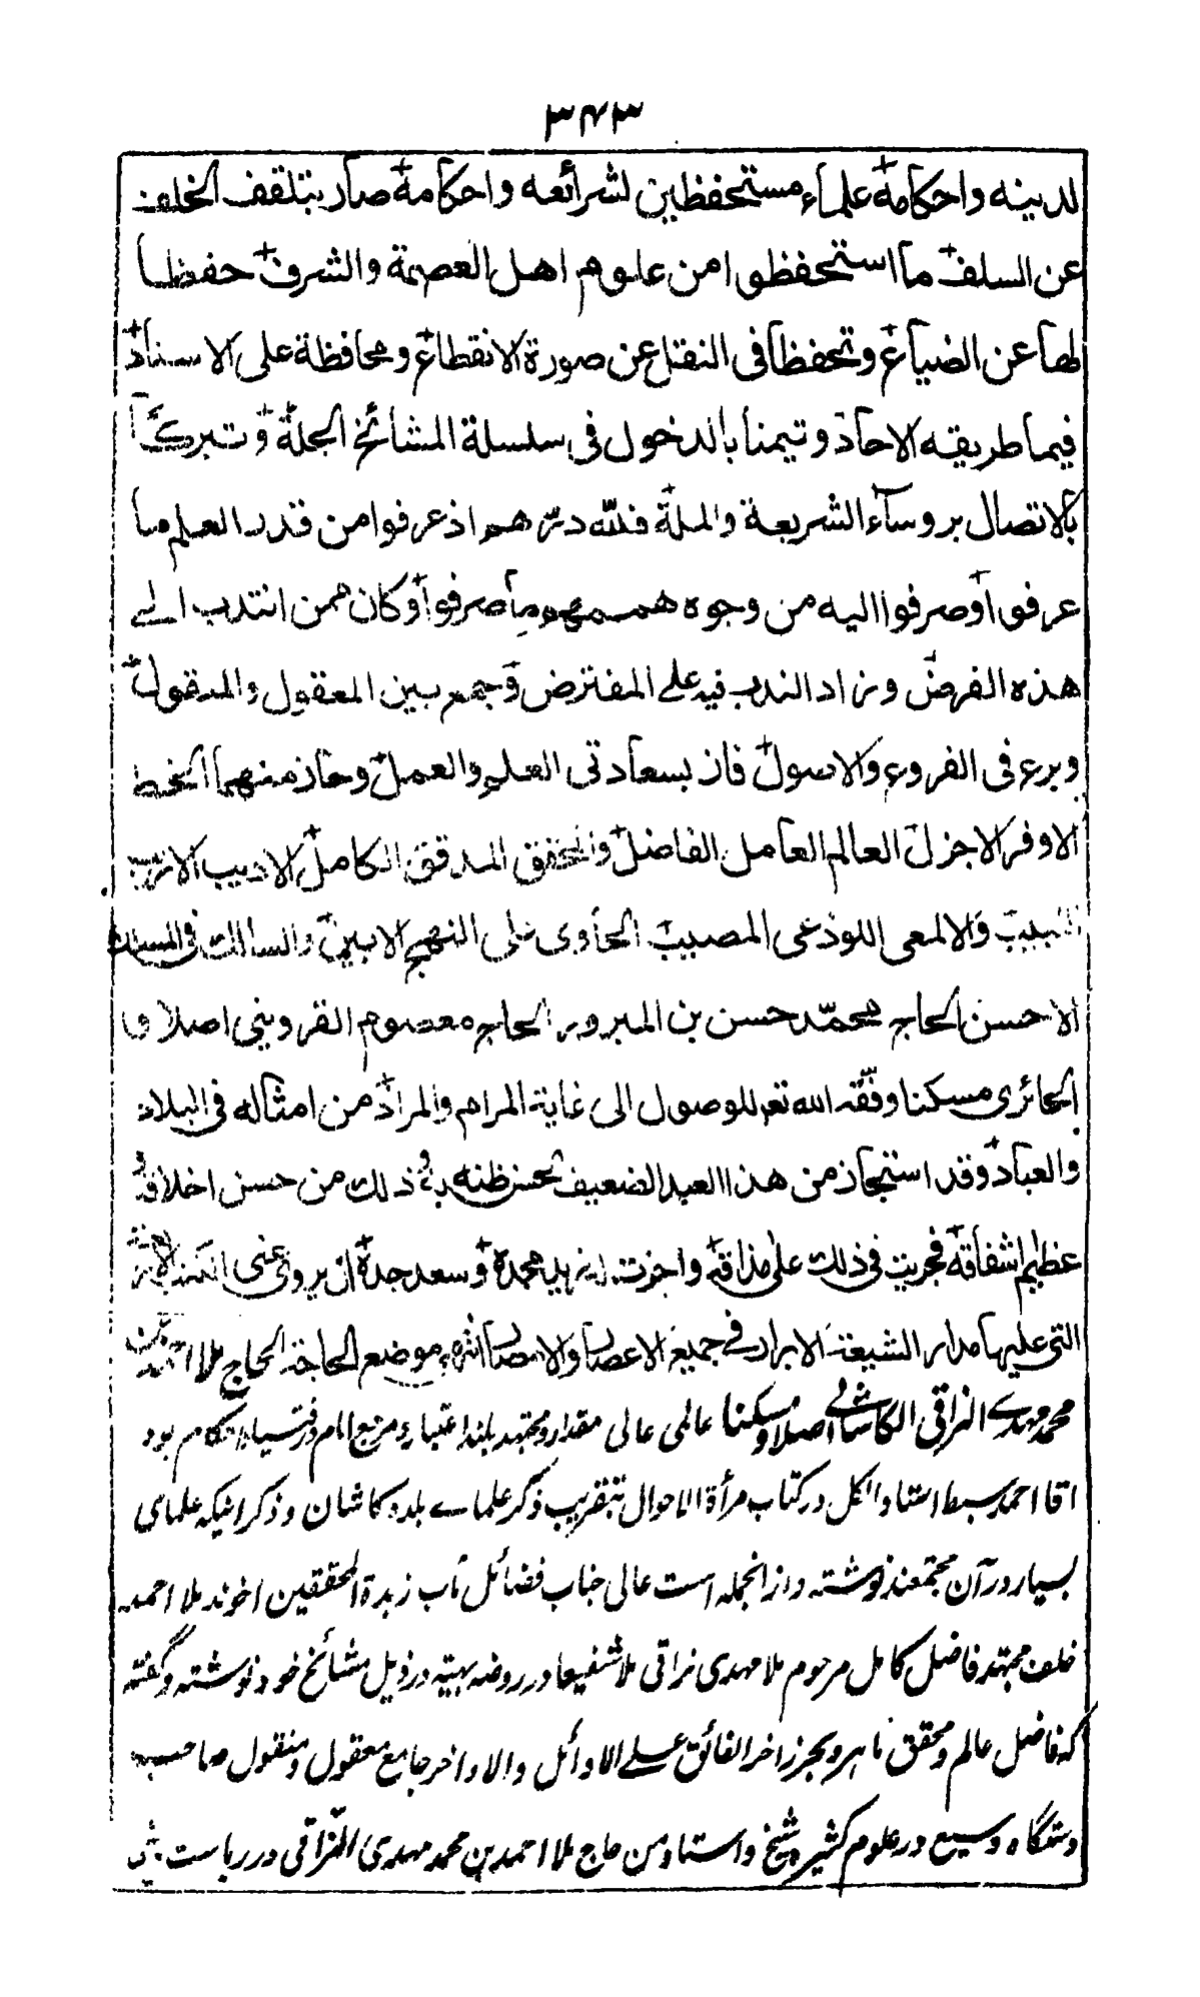 ۳۴۳
لدينه واحكامه علماء مستحفظين لشرائعه واحكامه صار يتلقف الخلف
عن السلف ما استحفظوا من علوم اهل العصمة والشرف حفظا
لها عن الضياع وتحفظا فى النقل عن صورة الانقطاع ومحافظة على الاسناد
فيما طريقه الاحاد وتيمنا بالدخول فى سلسلة المشائخ الجلة وتبركا
بالاتصال بروساء الشريعة والملة فلله درهم اذ عرفوا من قدر العلم ما
عرفوا وصرفوا اليه من وجوه هممهم ما صرفوا وكان ممن انتدب الے
هذه الفرض وزاد الندب فيه على المفترض وجمع بين المعقول والمنقول
وبرع فى الفروع والاصول فاز بسعادتى العلم والعمل وحاز منهما الخط
الاوفر الاجزل العالم العامل الفاضل والمحقق المدقق الكامل الاديب الاريب
اللبيب والالمعى اللوذعى المصيب الحاوى على النهج الابين والسالك فى المسلك
الاحسن الحاج محمّد حسن بن المبرور الحاج معصوم القزوينى اصلا و
الحائرى مسكنا وفّقه الله تعم للوصول الى غاية المرام والمراد من امثاله فى البلاد
والعباد وقد استجاز من هذا العبد الضعيف لحسن ظنه به وذلك من حسن اخلاقه
عظيم اشفاقه فجريت فى ذلك على مذاقه واجزت له زيد مجده وسعد جده ان يروى عنى
التى عليها مدار الشيعة الابرار فے جميع الاعصار والامصار انتهى موضع الحاجة الحاج ملا احمد بن
محمد مهدے النراقى الكاشانے اصلا ومسكنا عالمى عالى مقدار ومجتهد بلند اعتبار ومرجع انام
اقا احمد سبط استاد الكل در كتاب مرأة الاحوال بتقريب ذكر علماے بلده كاشان وذكر انيكه علماى
بسيار در آن مجتمعند نوشته واز انجمله است عالى جناب فضائل مآب زبدة المحققين اخوند ملا احمد
خلف مجتهد فاضل كامل مرحوم ملا مهدى نراقى ملا شفيعا در روضه بهيته در ذيل مشائخ خود نوشته وگفته
كه فاضل عالم ومحقق ماهر وبحر زاخر الفائق علے الاوائل والاواخر جامع معقول ومنقول صاحب
دستگاه وسيع در علوم كثيره شيخ واستاد من حاج ملا احمد بن محمد مهدى النراقى در رياست